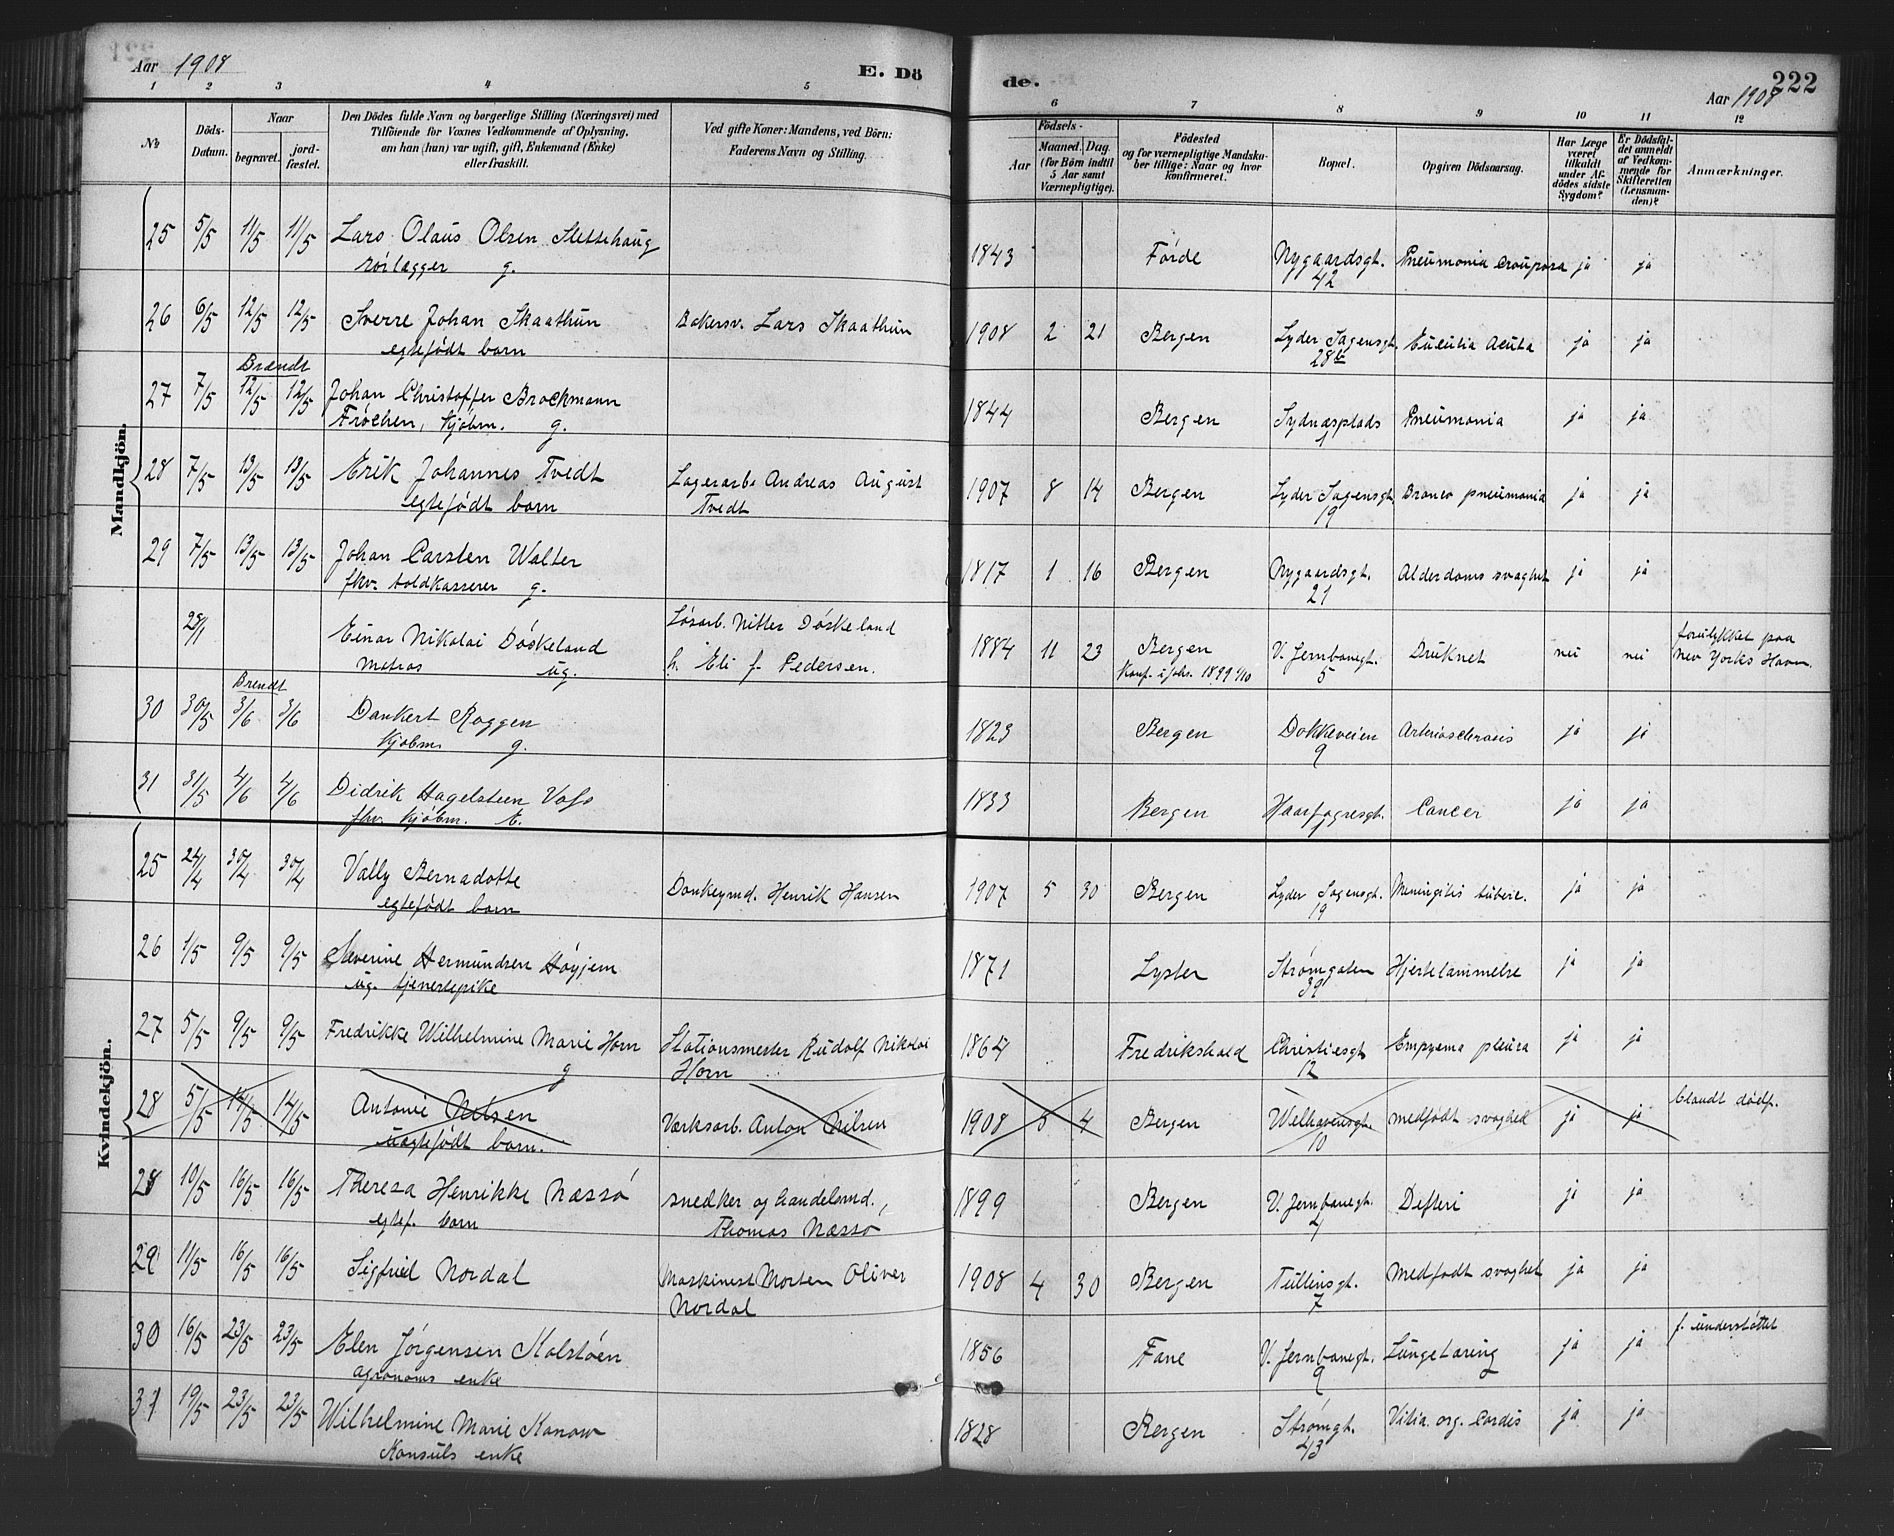 Aar 1908
E. Dö
de.
222
Aar 1908
1 2 3 4 5
6 7 8 9 10 11 12
No
Döds-
Datum.
Naar
begravet.
jord-
fæstet.
Den Dödes fulde Navn og borgerlige Stilling (Næringsvei) med
Tilföiende for Voxnes Vedkommende af Oplysning,
om han (hun) var ugift, gift, Enkemand (Enke)
eller fraskilt.
Ved gifte Koner: Mandens, ved Börn:
Faderens Navn og Stilling.
Födsels-
Aar
Maaned. Dag.
(for Börn indtil
5 Aar samt
Værnepligtige).
Födested
og for værnepligtige Mandska-
ber tillige: Naar og hvor
konfirmeret.
Bopæl.
Opgiven Dödsaarsag.
Har Læge
været
tilkaldt
under Af-
dödes sidste
Sygdom?
Er Dödsfal-
det anmeldt
af Vedkom-
mende for
Skifteretten
(Lensman-
den)?
Anmærkninger.
Mandkjön.
25 5/5 11/5 11/5 Lars Olaus Olsen Slettehaug 1843 Førde Nygaardsgt. Pneumonia crouposa ja ja
rørlægger g. 42
26 6/5 12/5 12/5 Sverre Johan Skaathun Bakersv. Lars Skaathun 1908 2 21 Bergen Lyder Sagensgt. Acuta ja ja
egtefødt barn 28b
Brændt
27 7/5 12/5 12/5 Johan Christoffer Brockmann 1844 Bergen Sydnæsplads Pneumonia ja ja
Frøchen, kjøbm. g. 1
28 7/5 13/5 13/5 Erik Johannes Tvedt Lagerarb. Andreas August 1907 8 14 Bergen Lyder Sagensgt. Bronco pneumonia ja ja
egtefødt barn Tvedt 19
29 7/5 13/5 13/5 Johan Carsten Walter 1817 1 16 Bergen Nygaardsgt. Alderdoms svaghet ja ja
fhv. toldkasserer g. 21
28/1 Einar Nikolai Døskeland Løsarb. Nitter Døskeland 1884 11 23 Bergen V. Jernbanegt. Druknet nei nei forulykket paa
matros ug. h. Eli f. Pedersen. Konf. i Johs. 1899 1/10 5 New Yorks Havn.
Brendt
30 30/5 3/6 3/6 Dankert Roggen 1823 Bergen Dokkeveien Arteriosclerosis ja ja
kjøbm. g. 9
31 31/5 4/6 4/6 Didrik Hagelsteen Voss 1833 Bergen Haarfagresgt. Cancer ja ja
fhv. kjøbm. E. 1
Kvindekjön.
25 24/4 30/4 30/4 Vally Bernadotte Donkeymd. Henrik Hansen 1907 5 30 Bergen Lyder Sagensgt. Meningitis tuberc. ja ja
egtefødt barn 19
26 1/5 9/5 9/5 Severine Hermundsen Høyjem 1871 Lyster Strømgaten Hjertelammelse ja ja
ug. tjenestepike 39
27 5/5 9/5 9/5 Fredrikke Wilhelmine Marie Horn Stationsmester Rudolf Nikolai 1864 Fredrikshald Christiesgt. Empyema pleura ja ja
g Horn 12
28 5/5 14/5 14/5 Antonie Nilsen Værksarb. Anton Nilsen 1908 5 4 Bergen Welhavensgt. medfødt svaghed ja ja blandt dødf.
uægtefødt barn. 10
28 10/5 16/5 16/5 Theresa Henrikke Næssø snedker og handelsmd., 1899 Bergen V. Jernbanegt. Defteri ja ja
egtef. barn Thomas Næssø 4
29 11/5 16/5 16/5 Sigfried Nordal Maskinist Morten Oliver 1908 4 30 Bergen Tullinsgt. Medfødt svaghet ja ja
Nordal 7
30 16/5 23/5 23/5 Elen Jørgensen Kolstøen 1856 Fane V. Jernbanegt. Lungetæring ja ja f. understøttet
agronoms enke 9
31 19/5 23/5 23/5 Wilhelmine Marie Konow 1828 Bergen Strømgt. Vitia. org. Cordis ja ja
Konsuls enke 43